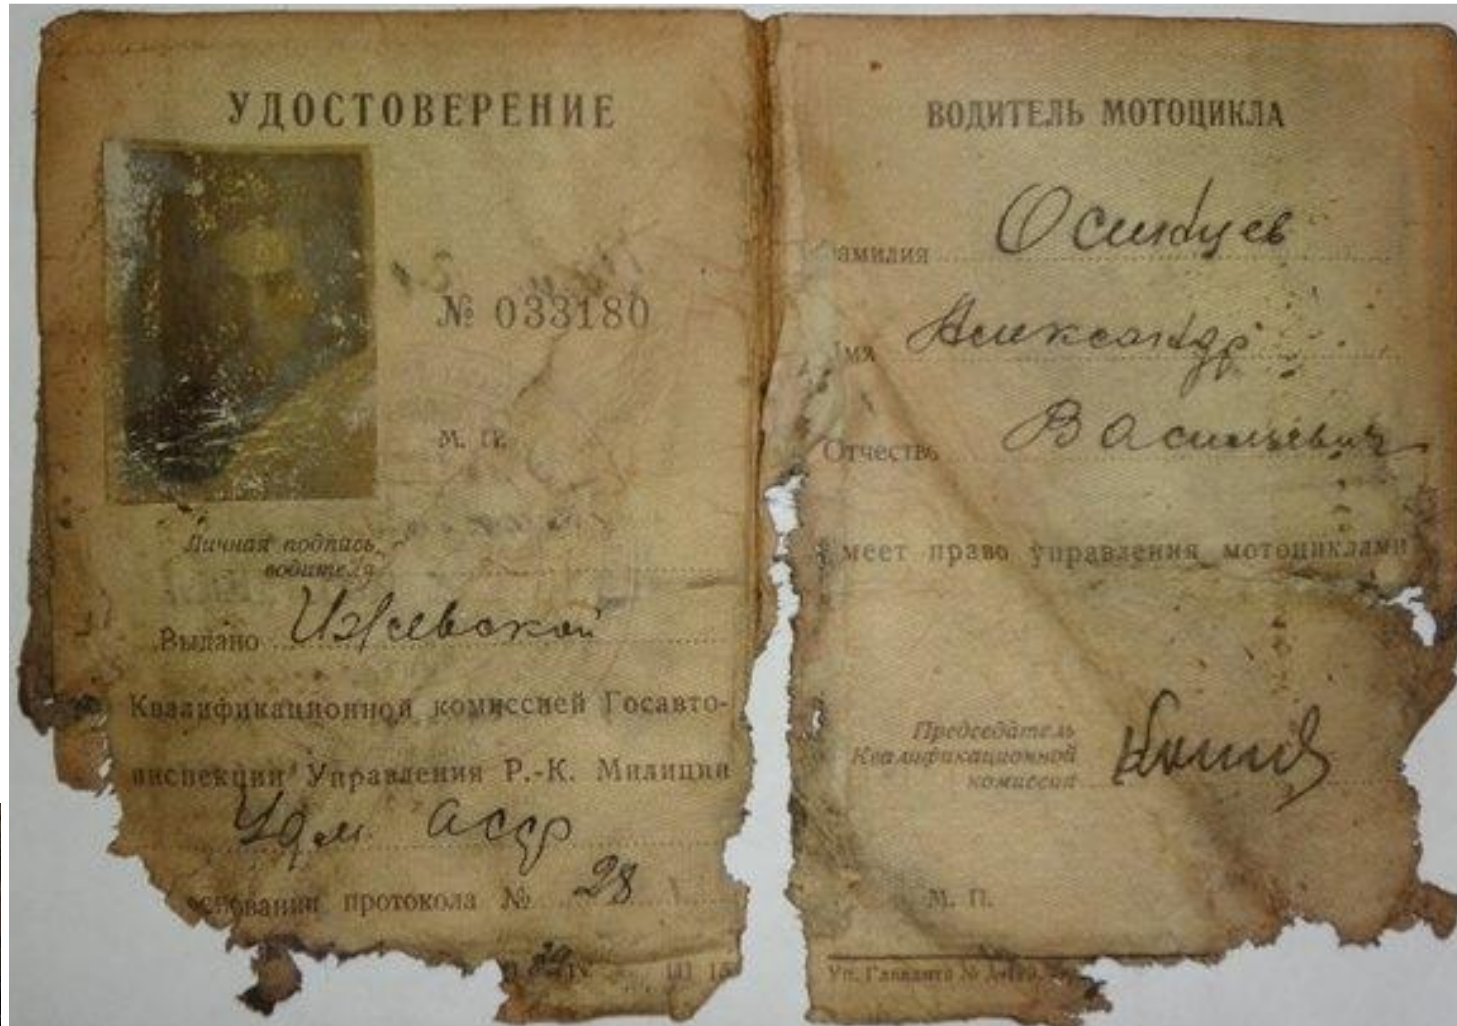 УДОСТОВЕРЕНИЕ
№ 033180
М. П.
Личная подпись
водителя
Выдано Ижевской
Квалификационной комиссией Госавто-
инспекции Управления Р.-К. Милиции
Удм АССР
основании протокола № 28
ВОДИТЕЛЬ МОТОЦИКЛА
Фамилия Осинцев
Имя Александр
Отчество Васильевич
Имеет право управления мотоциклами
Председатель
Квалификационной
комиссии
М. П.
Уп. Главлита №